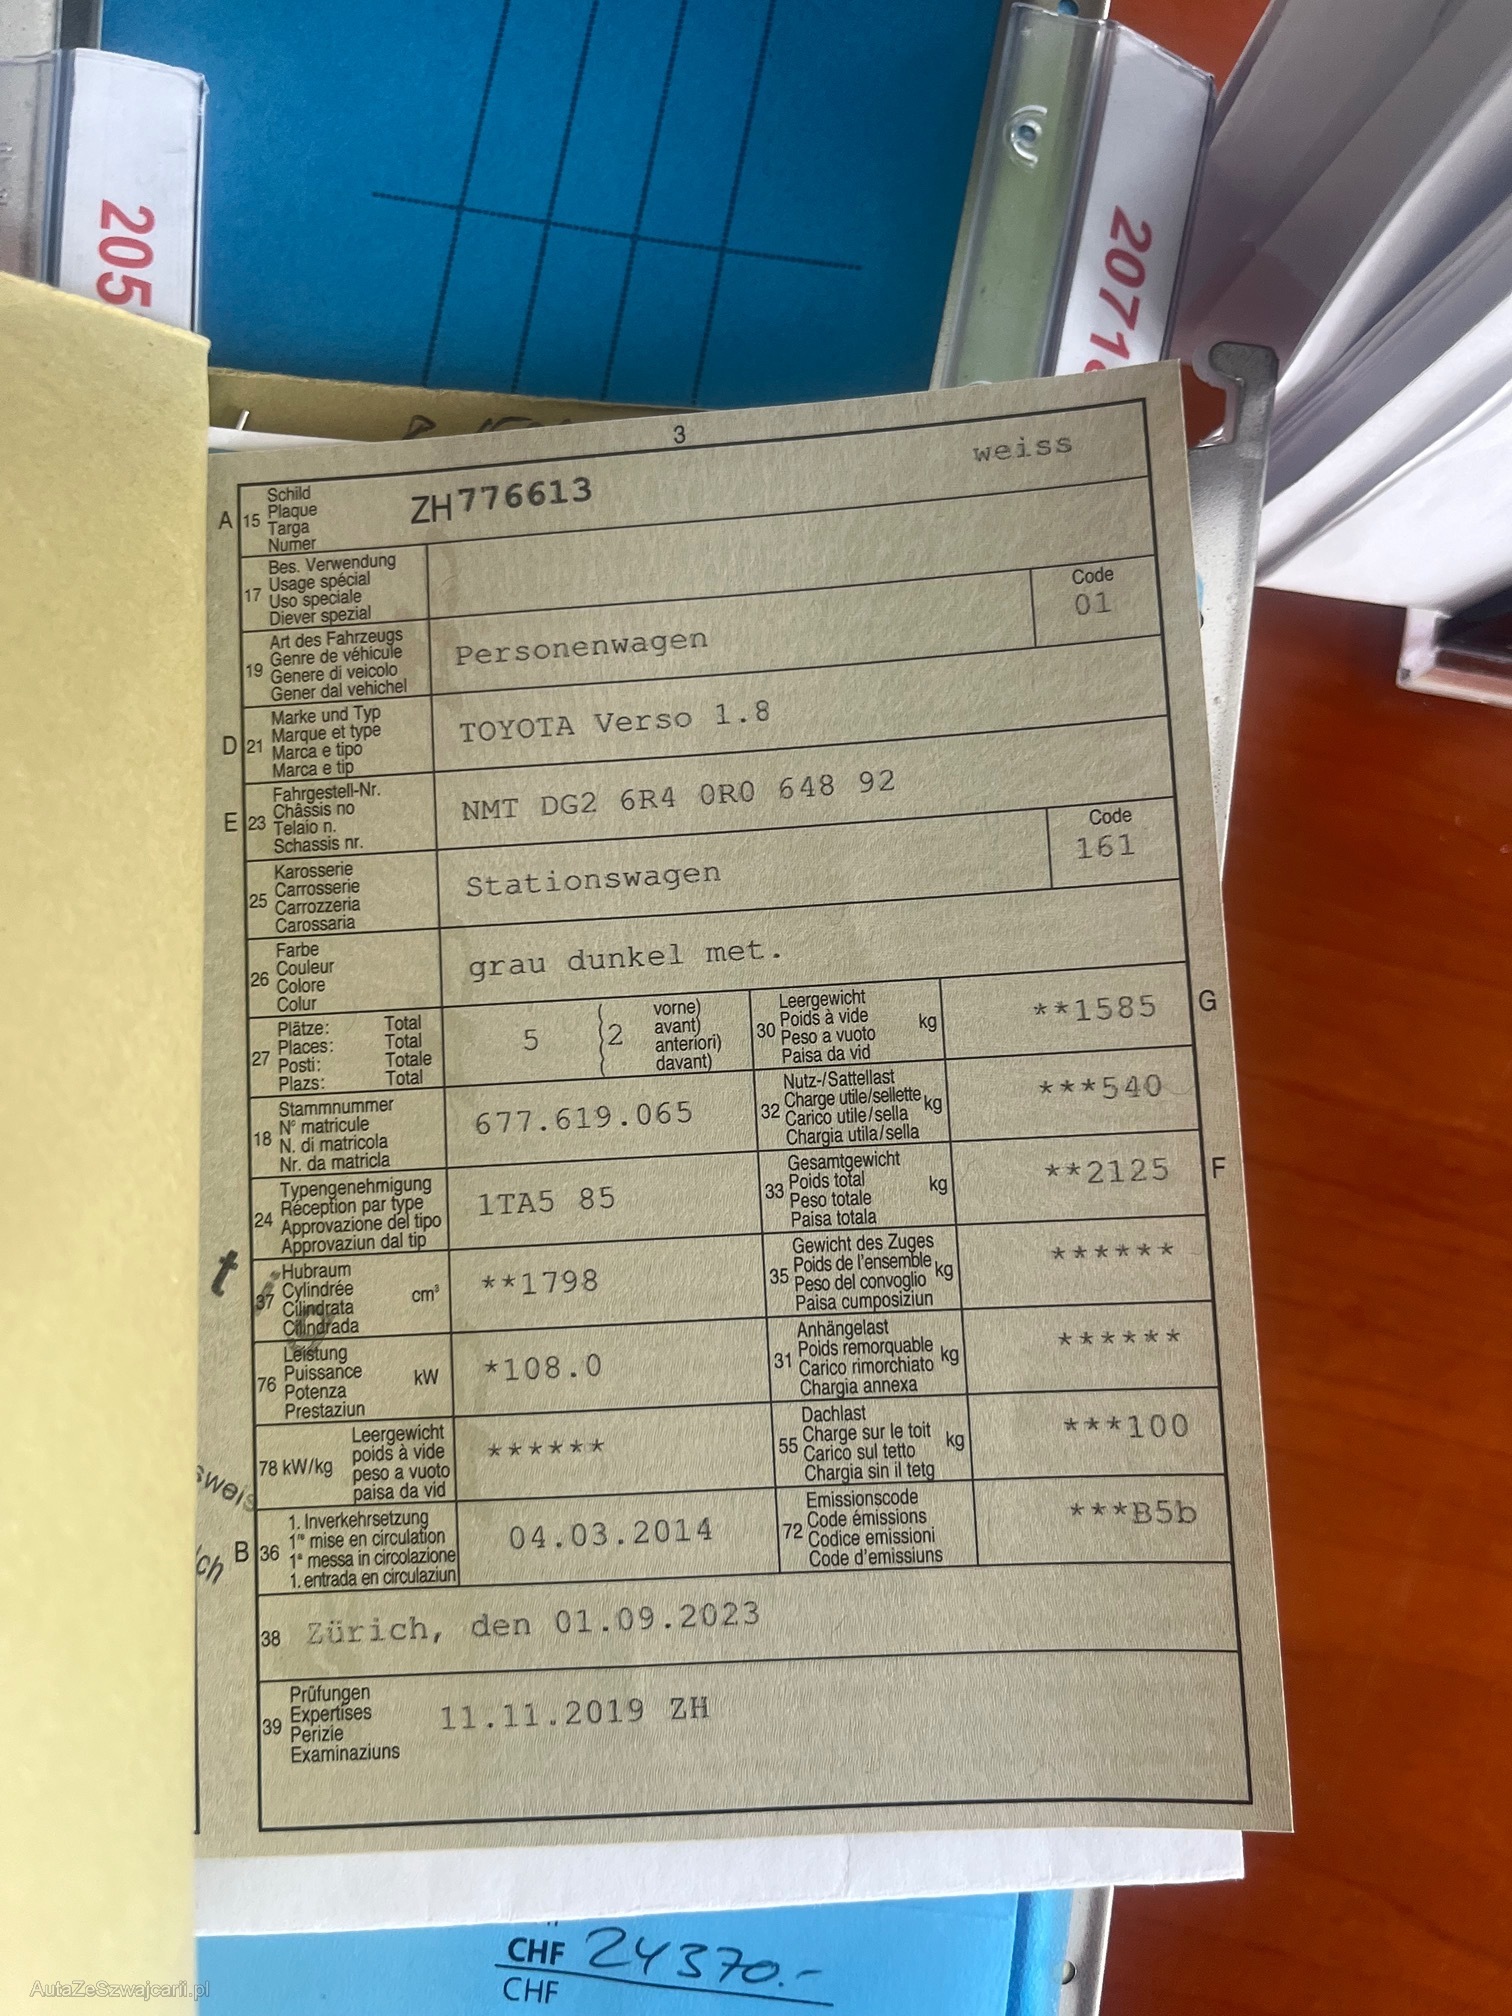 205
2071
3
A 15 Schild
Plaque
Targa
Numer
ZH 776613
weiss
17 Bes. Verwendung
Usage spécial
Uso speciale
Diever spezial
19 Art des Fahrzeugs
Genre de véhicule
Genere di veicolo
Gener dal vehichel
Personenwagen
Code
01
D 21 Marke und Typ
Marque et type
Marca e tipo
Marca e tip
TOYOTA Verso 1.8
E 23 Fahrgestell-Nr.
Châssis no
Telaio n.
Schassis nr.
NMT DG2 6R4 0R0 648 92
25 Karosserie
Carrosserie
Carrozzeria
Carossaria
Stationswagen
Code
161
26 Farbe
Couleur
Colore
Colur
grau dunkel met.
27 Plätze: Total
Places: Total
Posti: Totale
Plazs: Total
5 (2 vorne)
avant)
anteriori)
davant)
30 Leergewicht
Poids à vide
Peso a vuoto
Paisa da vid
kg
**1585
G
18 Stammnummer
N° matricule
N. di matricola
Nr. da matricla
677.619.065
32 Nutz-/Sattellast
Charge utile/sellette
Carico utile/sella
Chargia utila/sella
kg
***540
24 Typengenehmigung
Réception par type
Approvazione del tipo
Approvaziun dal tip
1TA5 85
33 Gesamtgewicht
Poids total
Peso totale
Paisa totala
kg
**2125
F
37 Hubraum
Cylindrée
Cilindrata
Cilindrada
cm³
**1798
35 Gewicht des Zuges
Poids de l'ensemble
Peso del convoglio
Paisa cumposiziun
kg
******
76 Leistung
Puissance
Potenza
Prestaziun
kW
*108.0
31 Anhängelast
Poids remorquable
Carico rimorchiato
Chargia annexa
kg
******
78 kW/kg Leergewicht
poids à vide
peso a vuoto
paisa da vid
******
55 Dachlast
Charge sur le toit
Carico sul tetto
Chargia sin il tetg
kg
***100
B 36 1. Inverkehrsetzung
1re mise en circulation
1a messa in circolazione
1. entrada en circulaziun
04.03.2014
72 Emissionscode
Code émissions
Codice emissioni
Code d'emissiuns
***B5b
38 Zürich, den 01.09.2023
39 Prüfungen
Expertises
Perizie
Examinaziuns
11.11.2019 ZH
CHF 24370.-
CHF
AutaZeSzwajcarii.pl